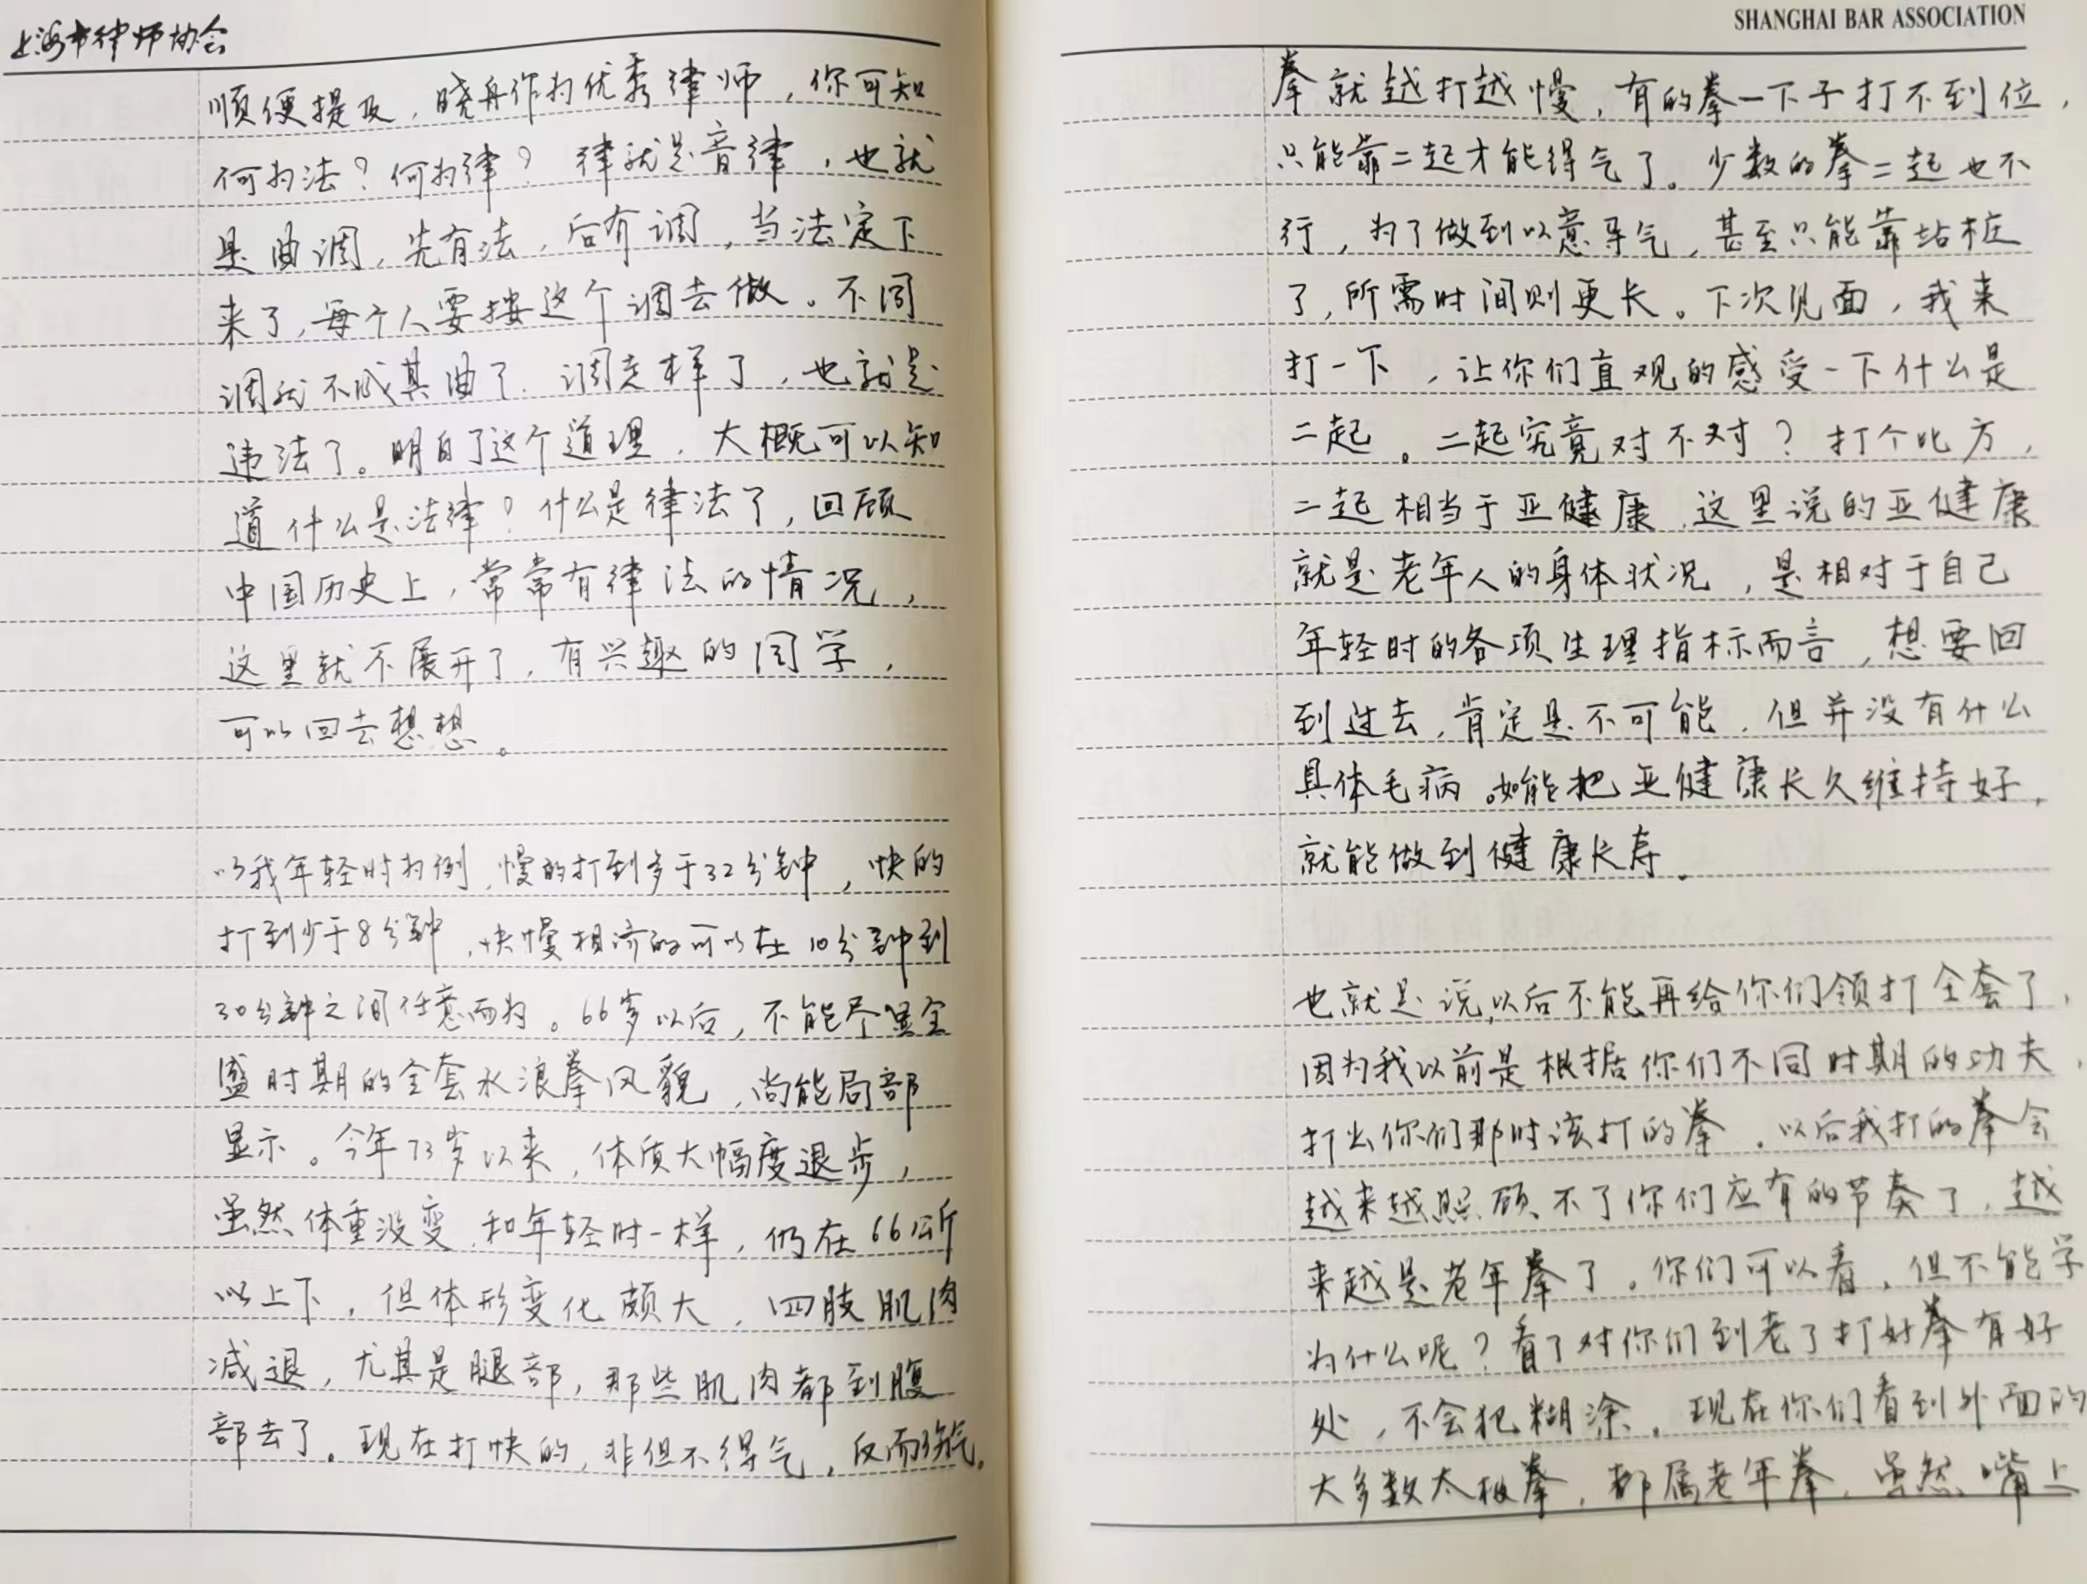 上海市律师协会
顺便提及，晓舟作为优秀律师，你可知
何为法？何为律？律就是音律，也就
是曲调，先有法，后有调，当法定下
来了，每个人要按这个调去做。不同
调就不成其曲了．调走样了，也就是
违法了。明白了这个道理，大概可以知
道什么是法律？什么是律法了，回顾
中国历史上，常常有律法的情况，
这里就不展开了，有兴趣的同学，
可以回去想想。
以我年轻时为例，慢的打到多于32分钟，快的
打到少于8分钟，快慢相济的可以在10分钟到
30分钟之间任意而为。66岁以后，不能尽显全
盛时期的全套水浪拳风貌，尚能局部
显示。今年73岁以来，体质大幅度退步，
虽然体重没变，和年轻时一样，仍在66公斤
以上下，但体形变化颇大，四肢肌肉
减退，尤其是腿部，那些肌肉都到腹
部去了。现在打快的，非但不得气，反而伤气。
SHANGHAI BAR ASSOCIATION
拳就越打越慢，有的拳一下子打不到位，
只能靠二起才能得气了。少数的拳二起也不
行，为了做到以意导气，甚至只能靠站桩
了，所需时间则更长。下次见面，我来
打一下，让你们直观的感受一下什么是
二起。二起究竟对不对？打个比方，
二起相当于亚健康，这里说的亚健康
就是老年人的身体状况，是相对于自己
年轻时的各项生理指标而言，想要回
到过去，肯定是不可能，但并没有什么
具体毛病。如能把亚健康长久维持好，
就能做到健康长寿。
也就是说，以后不能再给你们领打全套了，
因为我以前是根据你们不同时期的功夫，
打出你们那时该打的拳。以后我打的拳会
越来越照顾不了你们应有的节奏了，越
来越是老年拳了。你们可以看，但不能学
为什么呢？看了对你们到老了打好拳有好
处，不会犯糊涂。现在你们看到外面的
大多数太极拳，都属老年拳，虽然嘴上